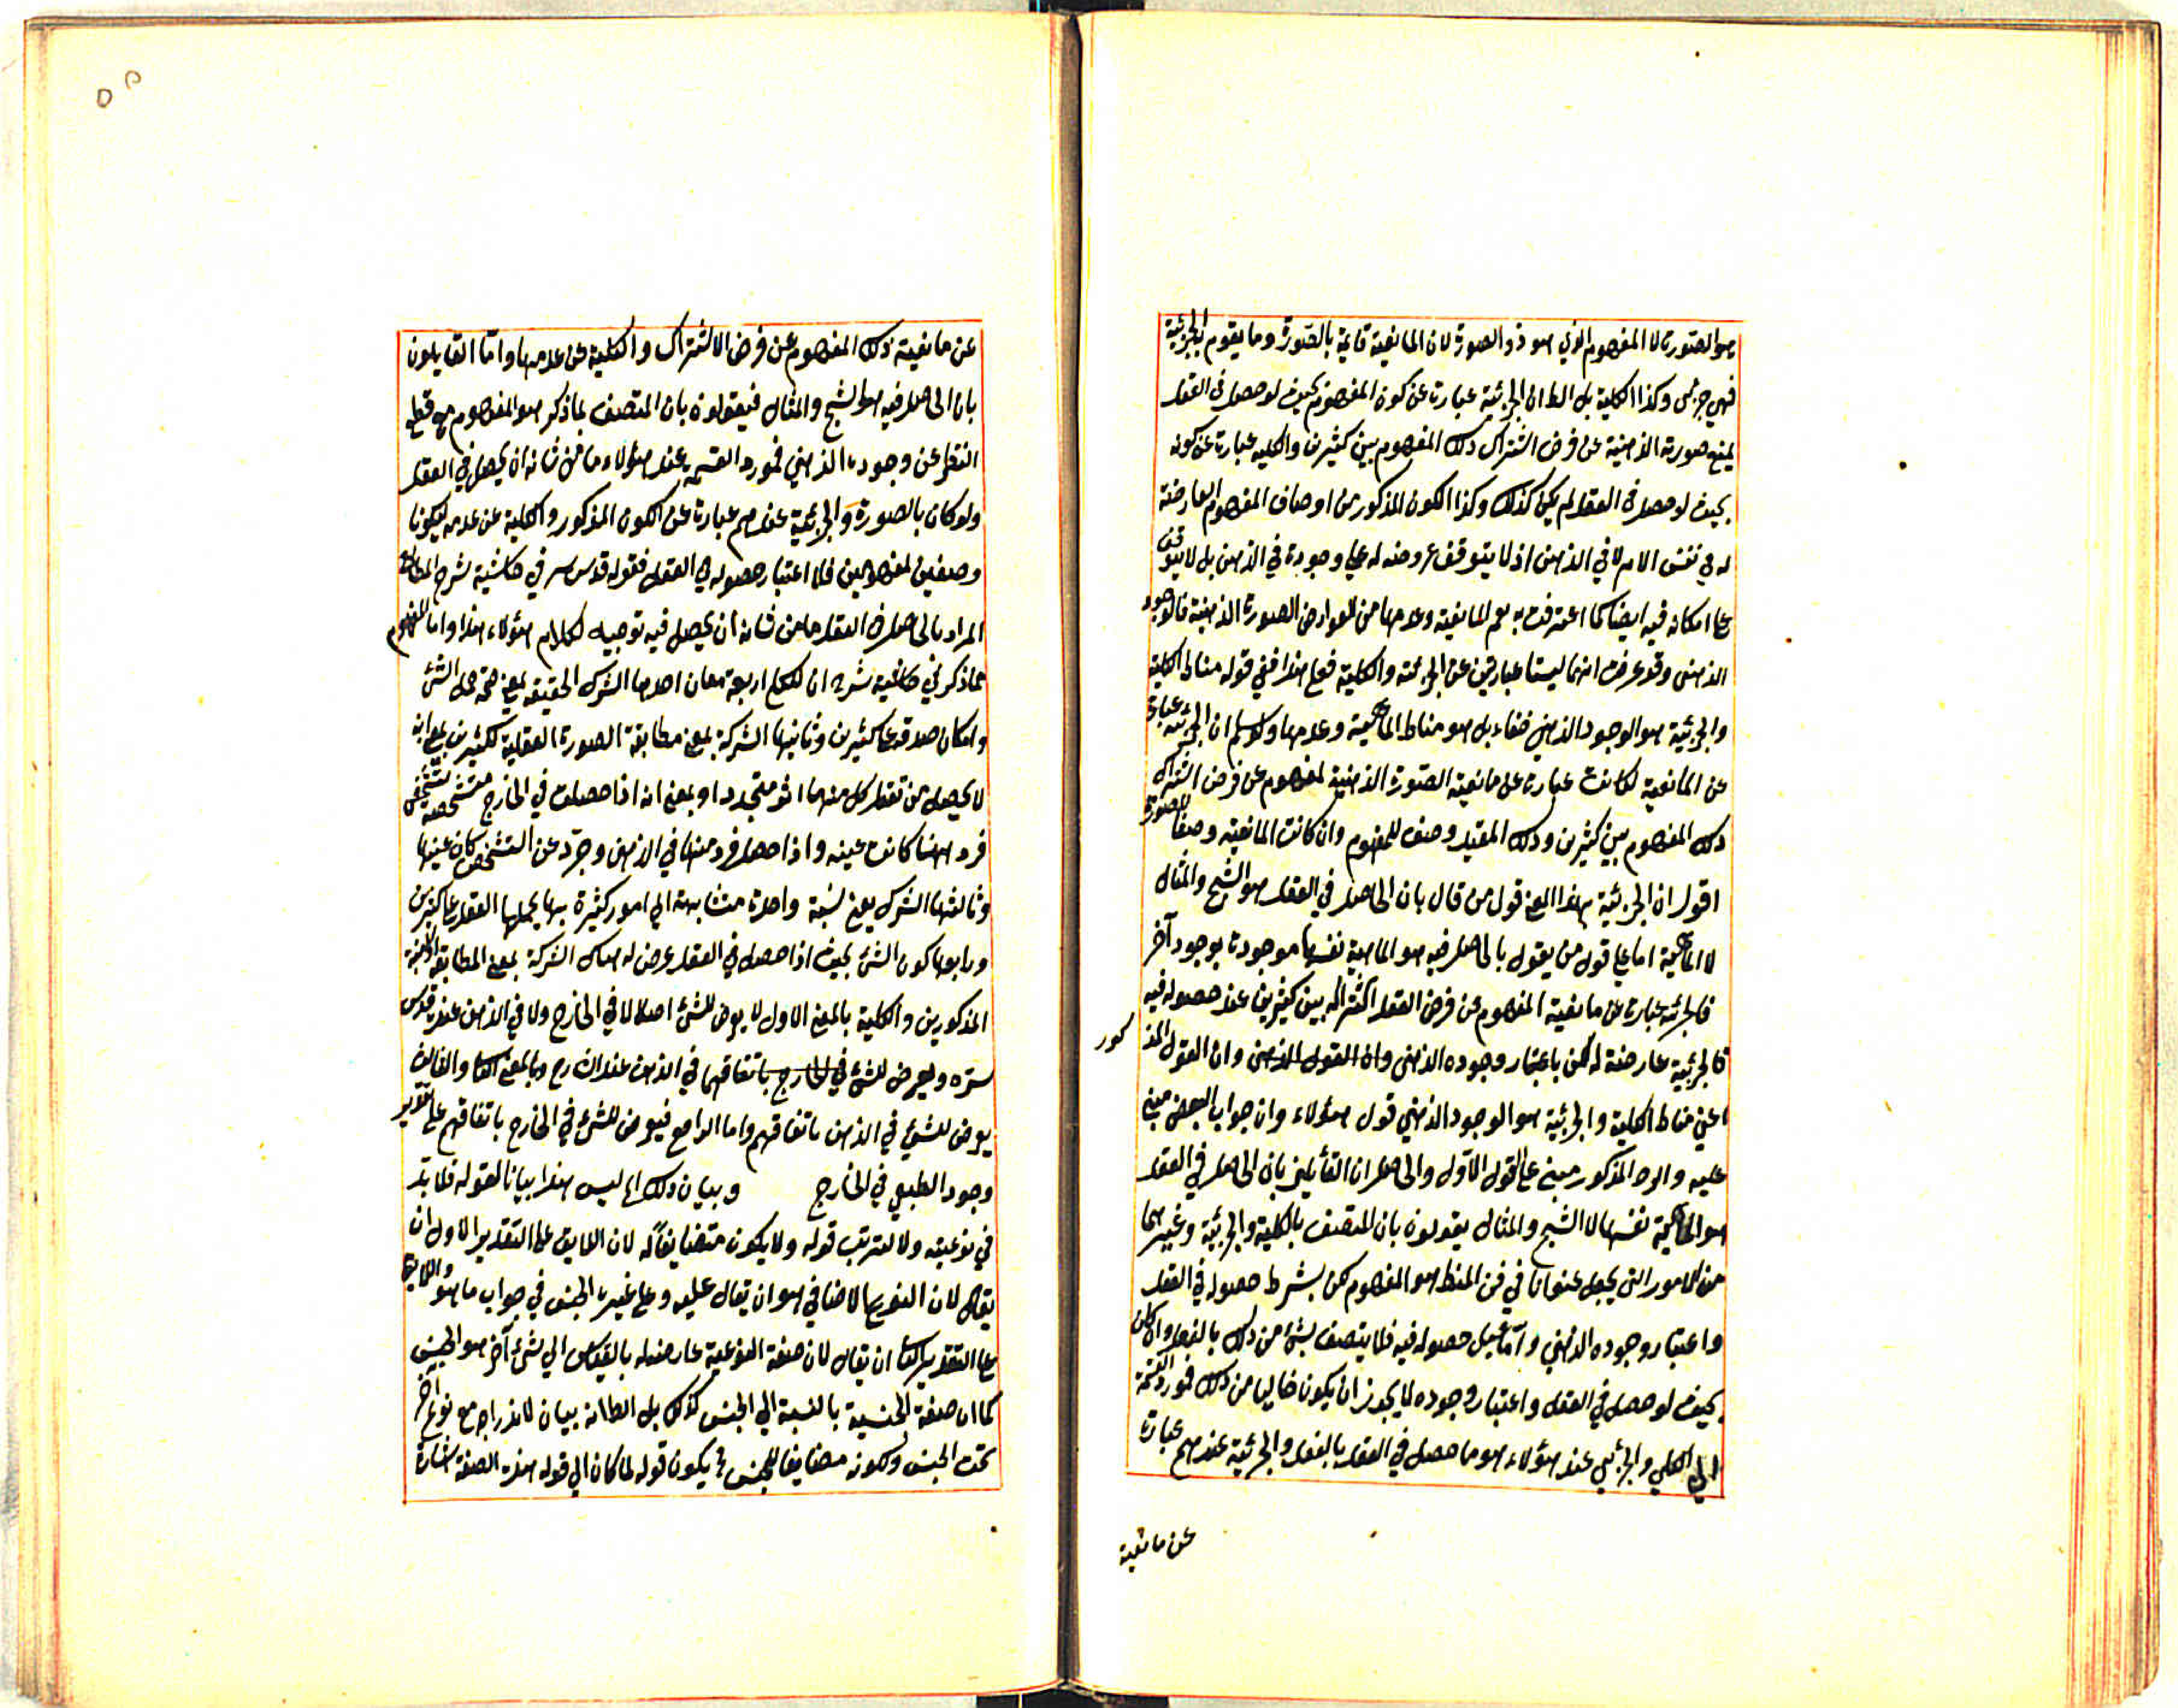 هو الصورة لا المفهوم الذي هو ذو الصورة لان المانعية قائمة بالصورة وما يقوم به الجزئية
فهي جزئي وكذا الكلية بل الظ ان الجزئية عبارة عن كون المفهوم بحيث لو حصل في العقل
يمنع صورته الذهنية عن فرض اشتراك ذلك المفهوم بين كثيرين والكلية عبارة عن كونه
بحيث لو حصل في العقل لم يكن كذلك وكذا الكون المذكور من اوصاف المفهوم العارضة
له في نفس الامر لا في الذهن اذ لا يتوقف عروضه له على وجوده في الذهن بل لا يتوقف
على امكانه فيه ايضا كما اعترفت به نعم المانعية وعدمها من العوارض الصورة الذهنية فالوجود
الذهني وقد عرفت انهما ليستا عبارتين عن الجزئية والكلية فعلى هذا ففي قوله مناط الكلية
والجزئية هو الوجود الذهني خفاء بل هو مناط المانعية وعدمها ولو سلم ان الجزئية عبارة
عن المانعية لكانت عبارة عن مانعية الصورة الذهنية لمفهوم عن فرض اشتراك
ذلك المفهوم بين كثيرين وذلك المقيد وصف للمفهوم وان كانت المانعية وصفا للصورة
اقول ان الجزئية بهذا المعنى قول من قال بان الحاصل في العقل هو الشبح والمثال
لا الماهية اما على قول من يقول بالحاصل فيه هو الماهية نفسها موجودة بوجود آخر
فالجزئية عبارة عن مانعية المفهوم عن فرض العقل اشتراكه بين كثيرين عند حصوله فيه
فالجزئية عارضة له لكن باعتبار وجوده الذهني وان القول الذهني وان القول المذكور
اعني مناط الكلية والجزئية هو الوجود الذهني قول هؤلاء وان جواب البعض مبني
عليه والرد المذكور مبني على القول الاول والحاصل ان القائلين بان الحاصل في العقل
هو الماهية نفسها لا الشبح والمثال يقولون بان المتصف بالكلية والجزئية وغيرهما
من الامور التي يجعل عنوانا في فن المنطق هو المفهوم لكن بشرط حصوله في العقل
واعتبار وجوده الذهني واما قبل حصوله فيه فلا يتصف بشئ من ذلك بالفعل وان كان
بحيث لو حصل في العقل واعتبار وجوده لا يجوز ان يكون خاليا من ذلك فمورد القسمة
الى الكلي والجزئي عند هؤلاء هو ما حصل في العقل بالفعل والجزئية عندهم عبارة
عن مانعية
عن مانعية ذلك المفهوم عن فرض الاشتراك والكلية عن عدمها واما القايلون
بان الحاصل فيه هو الشبح والمثال فيقولون بان المتصف بما ذكر هو المفهوم مع قطع
النظر عن وجوده الذهني فمورد القسمة عند هؤلاء ما من شانه ان يحصل في العقل
ولو كان بالصورة والجزئية عندهم عبارة عن الكون المذكور والكلية عن عدمه ليكونا
وصفين لمفهومين فلا اعتبار حصوله في العقل فقوله قدس سره في حاشية شرح المطالع
المراد بالحاصل في العقل ما من شانه ان يحصل فيه توجيه لكلام هؤلاء هذا واما المفهوم
مما ذكر في حاشية شرح ان للكلي اربعة معان احدها الشركة الحقيقية بمعنى صحة حمل الشئ
وامكان صدقه على كثيرين وثانيها الشركة بمعنى مطابقة الصورة العقلية لكثيرين بمعنى انه
لا يحصل من تعقل كل منها اثر متجدد او بمعنى انه اذا حصلت في الخارج متشخصة بتشخص
فرد منها كانت عينه واذا حصل فرد منها في الذهن وجرد عن التشخص كان عينها
وثالثها الشركة بمعنى نسبة واحدة متشابهة الى امور كثيرة بها يحملها العقل على كثيرين
ورابعها كون الشئ بحيث اذا حصل في العقل عرض له هناك الشركة بمعنى المطابقة الذهنية
المذكورين والكلية بالمعنى الاول لا يعرض للشئ اصلا لا في الخارج ولا في الذهن عنده قدس
سره ويعرض للشئ في الخارج باتفاقهما في الذهن عند الشارح وبالمعنى الثاني والثالث
يعرض للشئ في الذهن باتفاقهم واما الرابع فيعرض للشئ في الخارج باتفاقهم على تقدير
وجود الطبيعي في الخارج وبيان ذلك اه ليس هذا بيانا لقوله فلا بد
في نوعيته ولا لترتب قوله ولا يكون متضايفا له لان اللايق على التقدير الاول ان
يقال لان النوع الاضافي هو ان يقال عليه وعلى غيره الجنس في جواب ما هو واللايق
على التقدير الثاني ان يقال لان صفة النوعية عارضة له بالقياس الى شئ آخر هو الجنس
كما ان صفة الجنسية بالنسبة الى الجنس كذلك بل الظ انه بيان لاندراجه مع نوع آخر
تحت الجنس ولكونه مضايفا للجنس فح يكون قوله لما كان الى قوله هذه الصفة اشارة